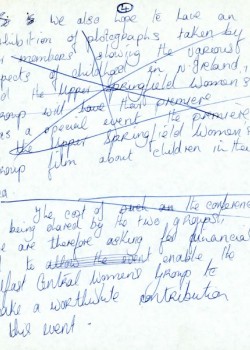 ④
We also hope to have an
hibition of photographs taken by
members showing the various
pects of childhood in N. Ireland,
d the Upper Springfield Women's
roup will have their premiere
as a special event the premiere
the Upper Springfield Women's
roup film about children in their
ea
The cost of such an the conference
being shared by the two groups,
e are therefore asking for financial
d to allow the event enable the
lfast Central Women's Group to
ake a worthwhile contribution
this event.